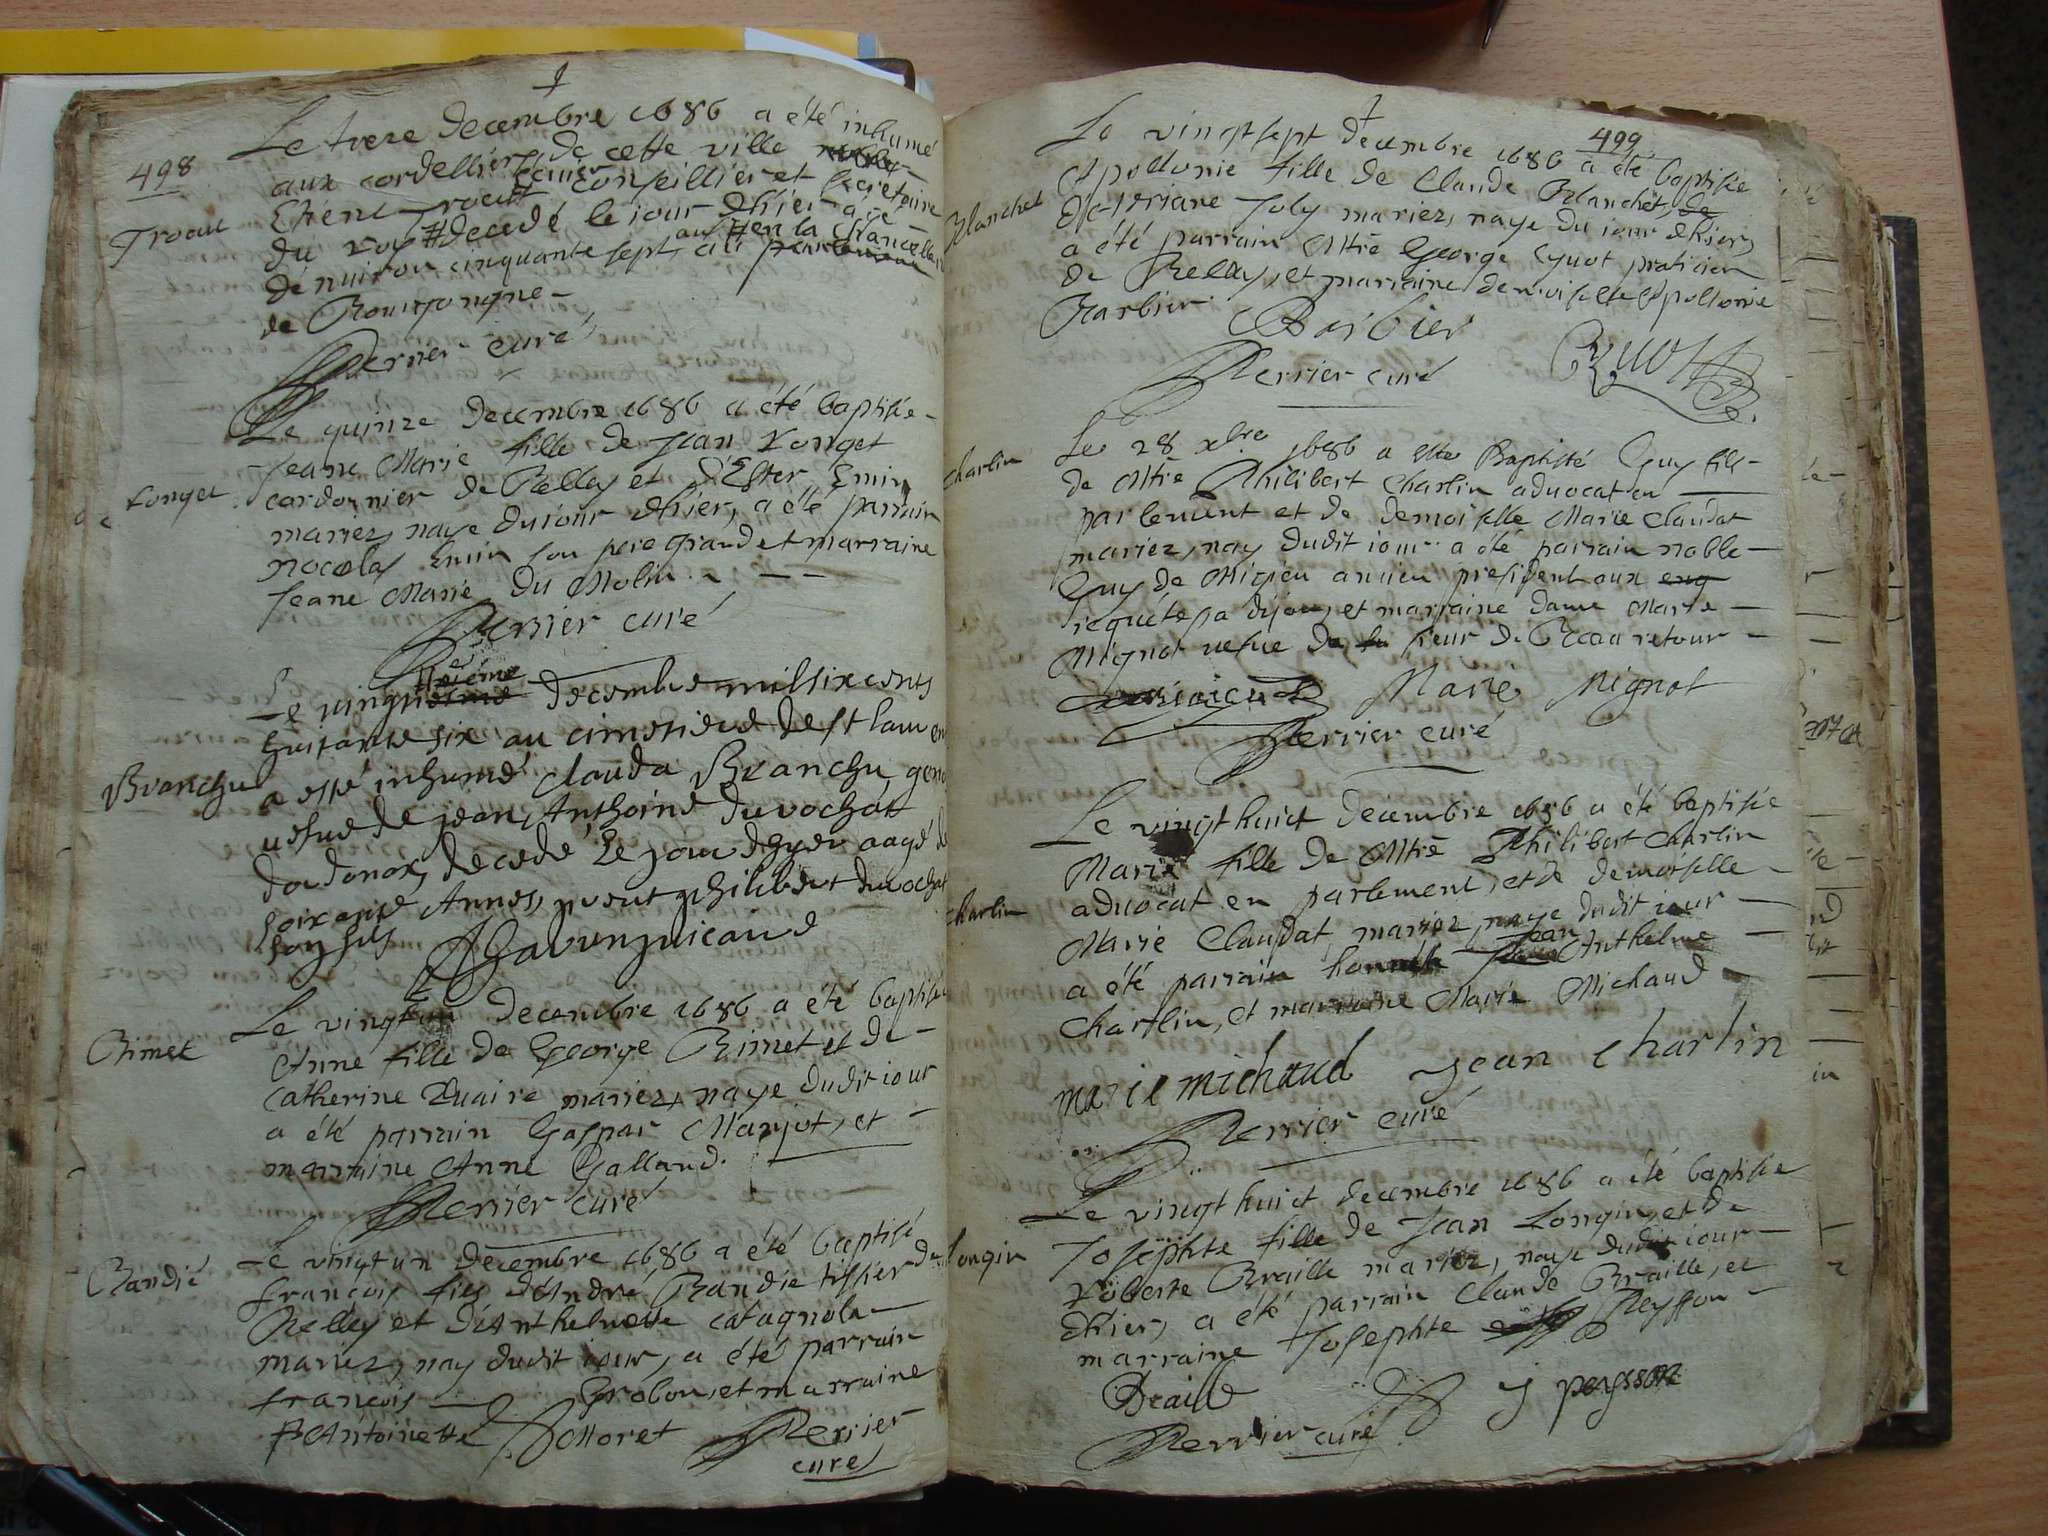 498
Le treze decembre 1686 a été inhumé
aux cordelliers de cette ville
Etiene Trocu Conseillier et secretaire
Trocu
du roy decedé le jour d'hier agé
en la chancelle
d'enuiron cinquante sept ans
de Bourgongne
Perrier curé
Le quinze decembre 1686 a été baptisée
Jeane Marie fille de Jean Longet
Longet
cordonnier de Belley et d'Ester Emin
mariez, naye du jour d'hier, a été parrain
nocolas Emin son pere grand et marraine
Jeane Marie Du Molin
Perrier curé
Le vingtieme decembre mil six cents
huitante six au cimetiere de st laurent
Branchu
a esté inhumé Clauda Branchu
uefue de jean Anthoine Duvochat
decedé Le jour d'hyer aagé de
soixante Annes, pnt philibert Duvochat
son fils
Le vingt un decembre 1686 a été baptisée
Bimet
Anne fille de George Bimet et de
Catherine mariez, naye dudit iour
a été parrain Gaspar Marjot, et
marraine Anne Galland.
Perrier curé
Le vingt un decembre 1686 a été baptisé
Bandié
françois fils d'André Bandie tissier de
Belley et d'Anthelmette catagnola
mariez, nay dudit iour, a été parrain
françois Grobon, et marraine
Antoinette Moret Perrier
curé
499
Le vingt sept decembre 1686 a été baptisée
Apollonie fille de Claude Blanchet, de
Blanchet
Driane Joly mariez, naye du iour d'hier,
a été parrain Mtre George Cyuot praticien
de Belley, et marraine demoiselle Apollonie
Barbier.
Barbier
Perrier curé
Cyuot
Le 28 xbre 1686 a este Baptisté Guy fils
Charlin
de Mtre Philibert Charlin aduocat en
parlement et de demoiselle Marie Claudat
mariez, nay dudit iour a été parrain noble
Guy de Migieu ancien president aux enq
requétes a dijon, et marraine dame Marie
Mignot uefue de la sieur De Beauretour
Marie Mignot
Perrier curé
Le vingt huict decembre 1686 a été baptisée
Marie fille de Mtre Philibert Charlin
Charlin
aduocat en parlement, et de demoiselle
Marie Claudat mariez, naye dudit iour
a été parrain Jean Anthelme
Charlin, et marraine Marie Michaud
marie michaud Jean Charlin
Perrier curé
Le vingt huict decembre 1686 a été baptisée
Longin
Josephte fille de Jean Longin, et de
Roberte Braille mariez, naye dudit iour
d'hier, a été parrain Claude Braille, et
marraine Josephte Peysson
Braille J peysson
Perrier curé